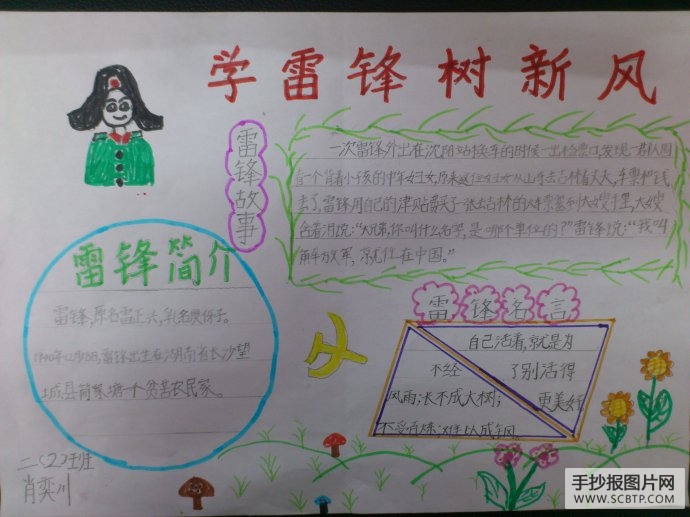 学雷锋树新风
雷锋故事
一次雷锋外出在沈阳站换车的时候一出检票口,发现一群人围
着一个背着小孩的中年妇女,原来这位妇女从山东去吉林看丈夫,车票和钱
丢了,雷锋用自己的津贴费买了一张去吉林的火车票塞到大嫂手里,大嫂
含着泪说:“大兄弟,你叫什么名字,是哪个单位的?”雷锋说:“我叫
解放军,就住在中国。”
雷锋简介
雷锋,原名雷正兴,乳名庚伢子。
1940年12月18日,雷锋出生在湖南省长沙望
城县简家塘一个贫苦农民家。
雷锋名言
自己活着,就是为
了别活得
更美好
不经
风雨;长不成大树;
不受百炼;难以成钢。
二(2)班
肖奕川
手抄报图片网
WWW.SCBTP.COM